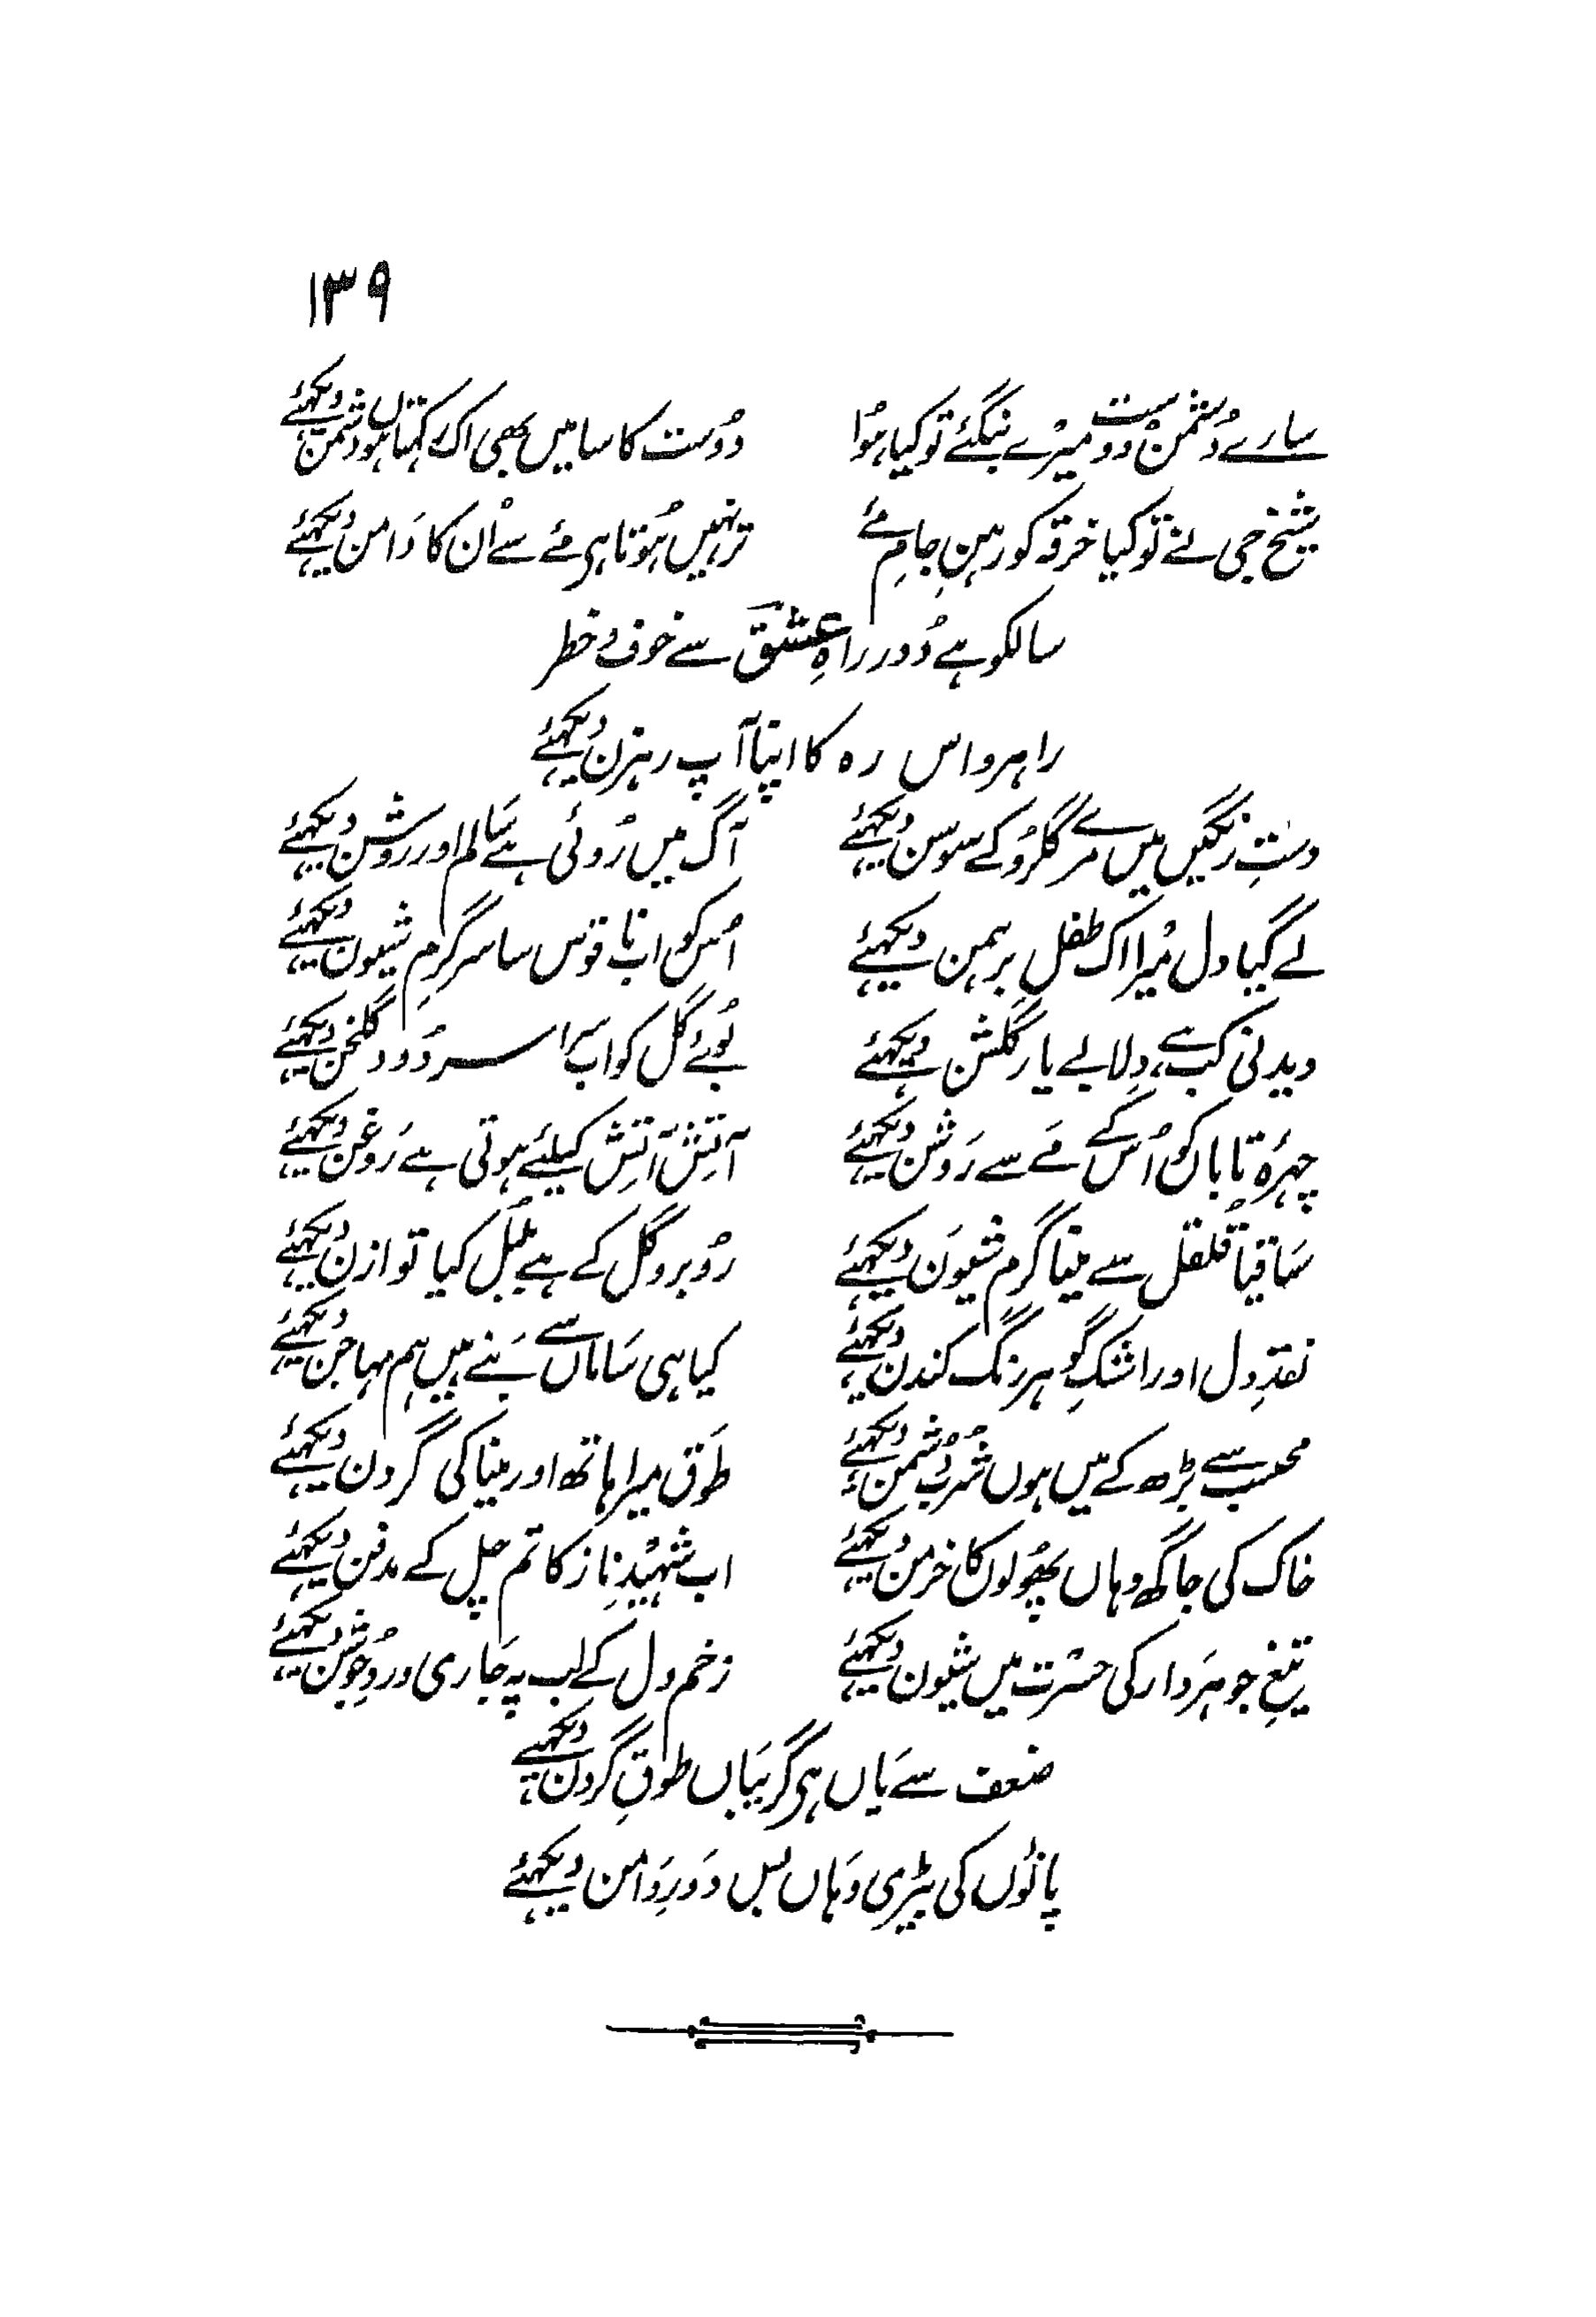 ۱۳۹
سارے دُشمن دوست میرے بنگئے تو کیا ہوُا دوُست کا سا میں بھی اک رکہتا ہوں دشمن دیکہئے
شیخ جی نے تو کیا خرقہ کو رہنِ جامِ مۓ تر نہیں ہوُتا ہی مۓ سے اُن کا دَامن دیکہئے
سالکو ہے دُور راہِ عشق سے خوف و خطر
راہرو اس رہ کا اپنا آپ رہزن دیکہئے
دستِ رنگیں میں مرے گلرُو کے سوسن دیکہئے آگ میں رُوئی ہے سَالم اور روشن دیکہئے
لے گیا دل میرا اک طفل برہمن دیکہئے اُس کو اب ناقوس سا سرگرمِ شیون دیکہئے
دیدنی کب ہے، دِلا بے یار گلشن دیکہئے بُوئے گل کو اب سَراسر دُود گلخن دیکہئے
چہرۂ تاباں کو اُس کے مَے سے رَوشن دیکہئے آتِش آتِش کیلئے ہوتی ہے رَوغن دیکہئے
سَاقیا قُلقل سے مینا گرم شیوَن دیکہئے رُوبرو گل کے ہے بلبُل کیا نوازن دیکہئے
نقدِ دل اور اشکِ گوہر رنگ کندن دیکہئے کیا ہی سَاماں سے بَنے ہیں ہم مہاجن دیکہئے
محتسب سے بڑھ کے میں ہوں شُرب دُشمن دیکہئے طَوق میرا ہاتھ اور مینا کی گردن دیکہئے
خاک کی جاگھ وہاں پھُولوں کا خرمن دیکہئے اب شہیدِ ناز کا تم چل کے مدفن دیکہئے
تیغِ جوہرَدار کی حسرت میں شیون دیکہئے زخم دل کے لب پہ جَاری وردِ جوشن دیکہئے
ضعف سے یَاں ہی گریبَاں طوقِ گردن دیکہئے
پانوُں کی بیڑی وَہاں بس دَورِ دَامن دیکہئے